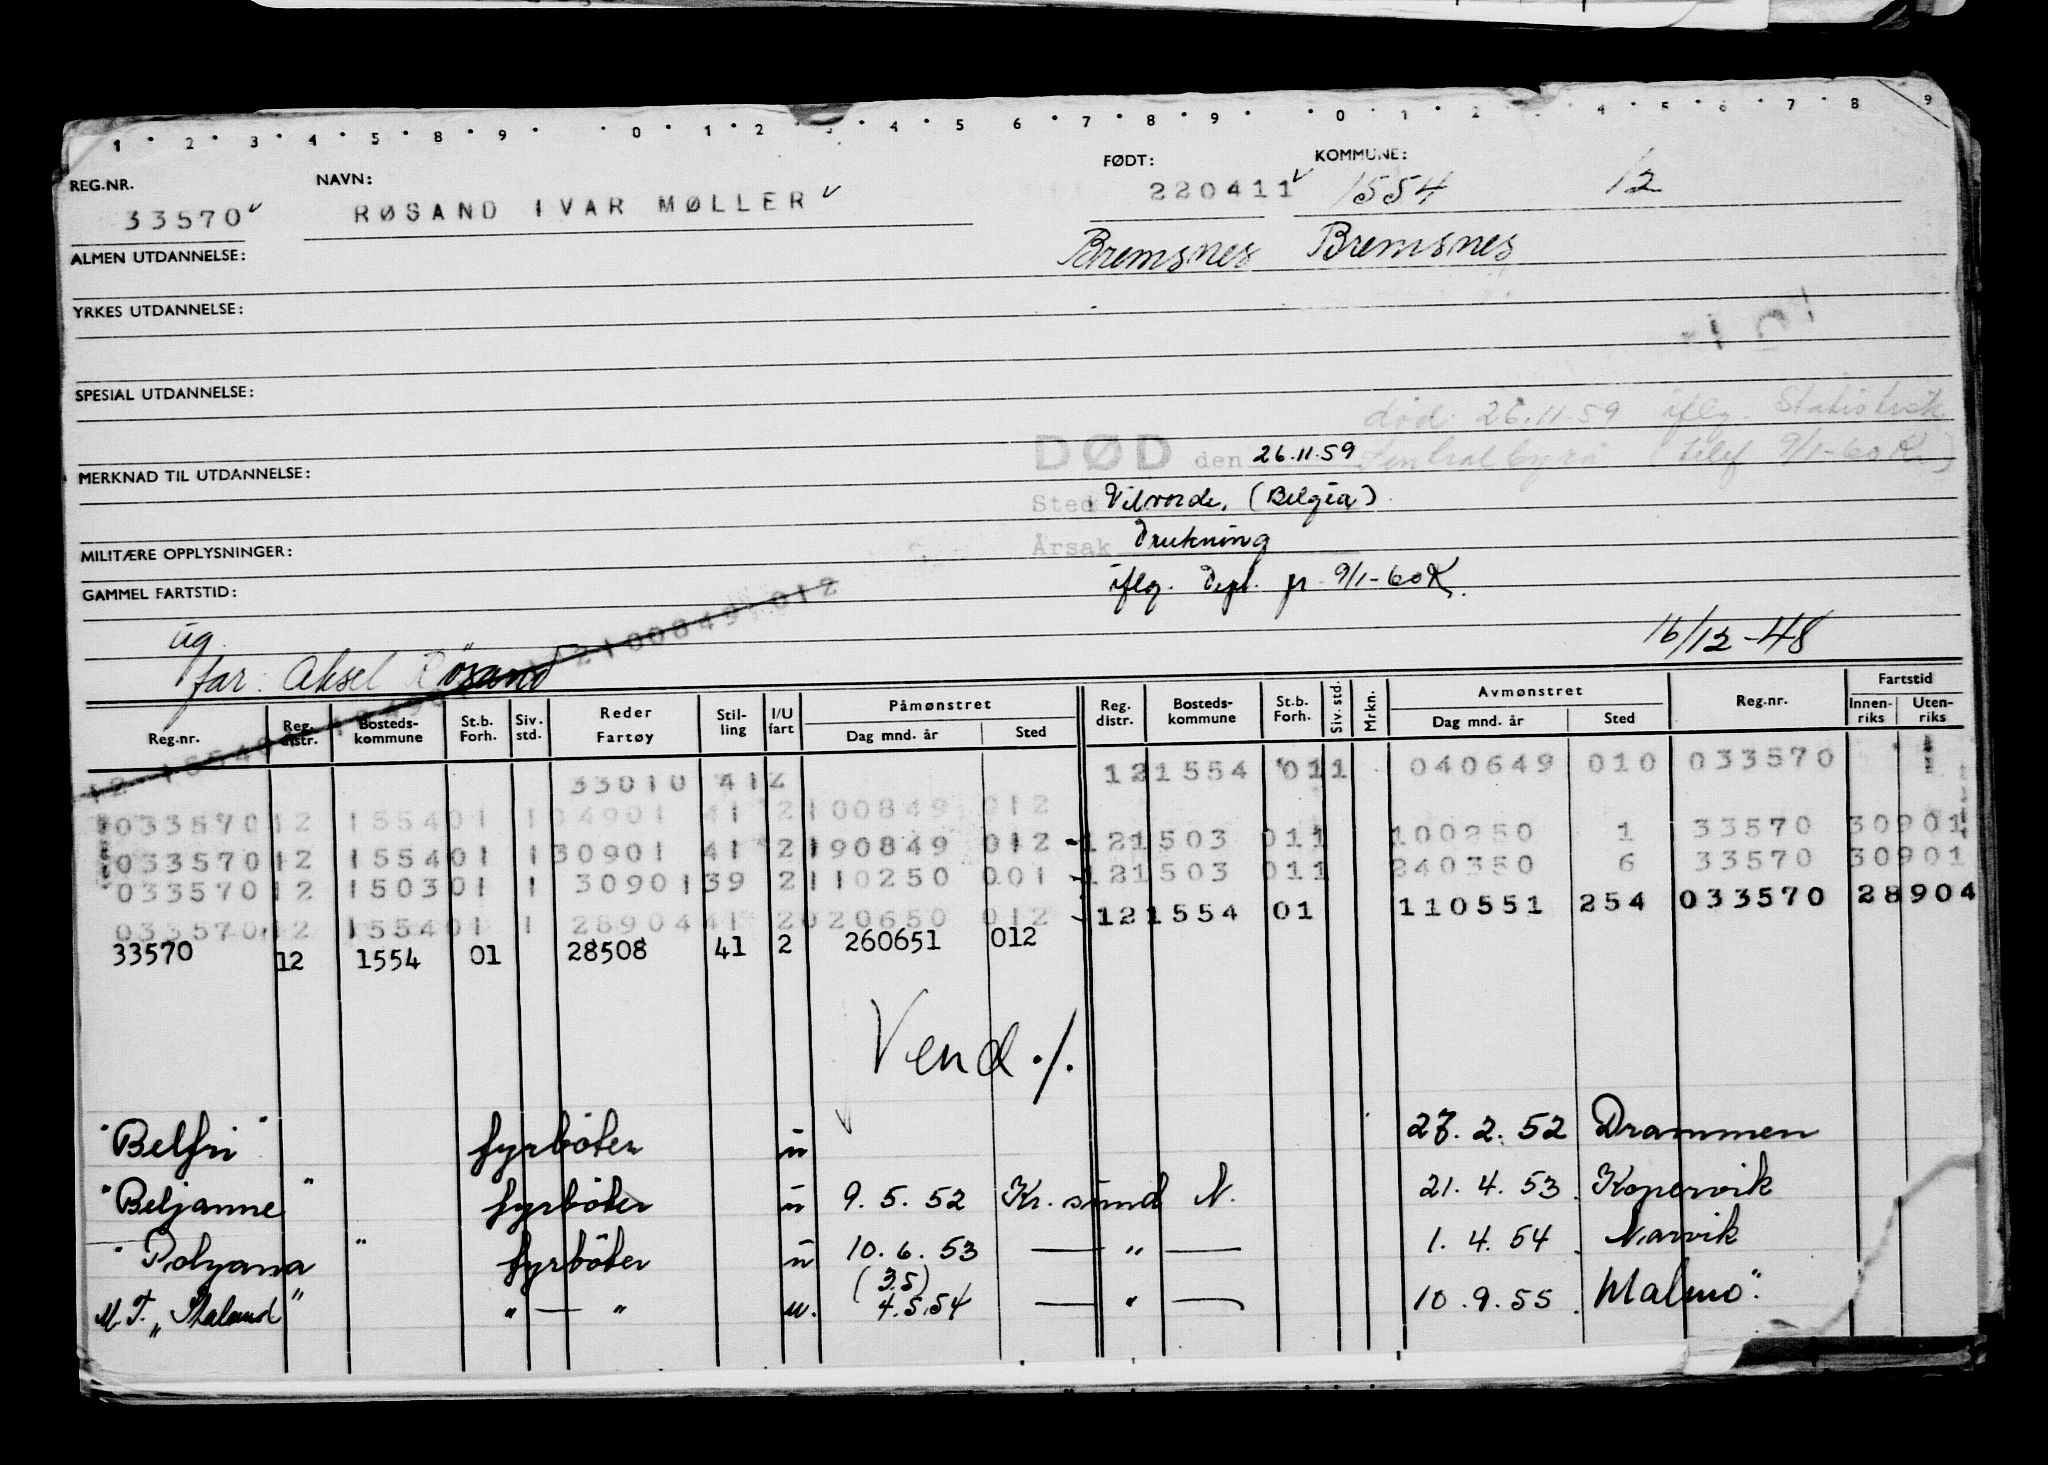 1 2 3 4 5 8 9 0 1 2 3 4 5 6 7 8 9 0 1 2 4 5 6 7 8 9
REG.NR. NAVN: FØDT: KOMMUNE:
33570 RØSAND IVAR MØLLER 220411 1554 12
ALMEN UTDANNELSE: Bremsnes Bremsnes
YRKES UTDANNELSE:
SPESIAL UTDANNELSE:
død 26.11.59 iflg. Statistisk
DØD den 26.11.59 Sentralbyrå (telef 9/1-60 K)
MERKNAD TIL UTDANNELSE:
Sted Vilvorde, (Belgia)
Årsak Drukning
MILITÆRE OPPLYSNINGER:
iflg. Dept. pr 9/1-60 K.
GAMMEL FARTSTID:
ug. 16/12-48
far: Aksel Røsand
Reg.nr. Reg. distr. Bosteds-kommune St.b. Forh. Siv. std. Reder Fartøy Stil-ling I/U fart Påmønstret Dag mnd. år Sted Reg. distr. Bosteds-kommune St.b. Forh. Siv. std. Mrkn. Avmønstret Dag mnd. år Sted Reg.nr. Fartstid Innen-riks Uten-riks
33010 412 121554 011 040649 010 033570
033570 12 1554 01 1 04901 41 2 100849 012
033570 12 1554 01 1 30901 41 2 190849 012 121503 011 100250 1 33570 30901
033570 12 1503 01 1 30901 39 2 110250 001 121503 011 240350 6 33570 30901
033570 12 1554 01 1 28904 41 2 020650 012 121554 01 110551 254 033570 28904
33570 12 1554 01 28508 41 2 260651 012
Vend ./.
"Belfri" fyrbøter u 27. 2. 52 Drammen
"Beljanne" fyrbøter u 9. 5. 52 Kr. sund N. 21. 4. 53 Kopervik
"Polyana" fyrbøter u 10. 6. 53 — " — 1. 4. 54 Narvik
(3.5)
M.T. " " — " u. 4.5.54 — " — 10. 9. 55 Malmö.